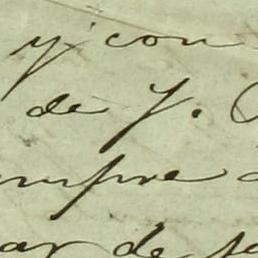 y con
de J.
mpre
ar de